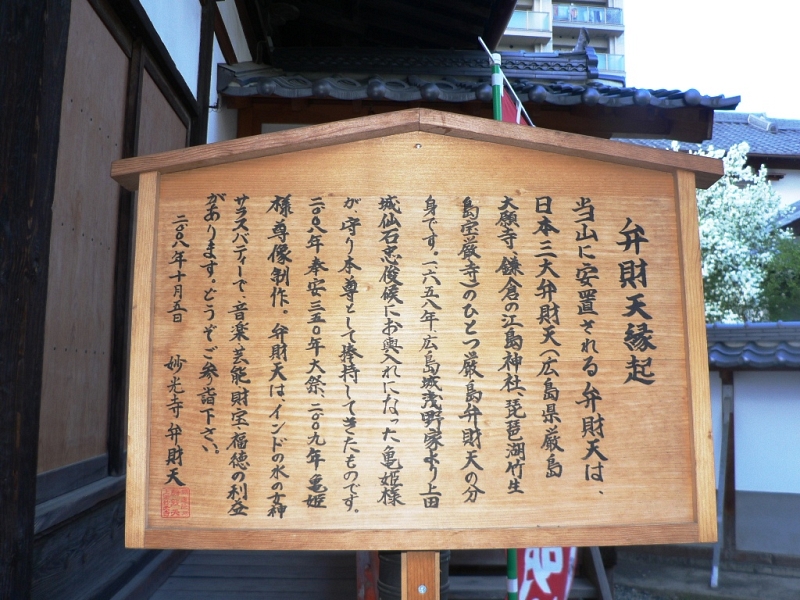 弁財天縁起
当山に安置される弁財天は、
日本三大弁財天(広島県厳島
大願寺、鎌倉の江島神社、琵琶湖竹生
島宝厳寺)のひとつ厳島弁財天の分
身です。一六五八年、広島城浅野家より上田
城仙石忠俊候にお輿入れになった亀姫様
が、守り本尊として捧持して来たものです。
二〇〇八年奉安三五〇年大祭、二〇〇九年亀姫
様尊像制作。弁財天は、インドの水の女神
サラスバティーで、音楽、芸能、財宝、福徳の利益
があります。どうぞご参詣下さい。
二〇〇八年十月五日 妙光寺 弁財天